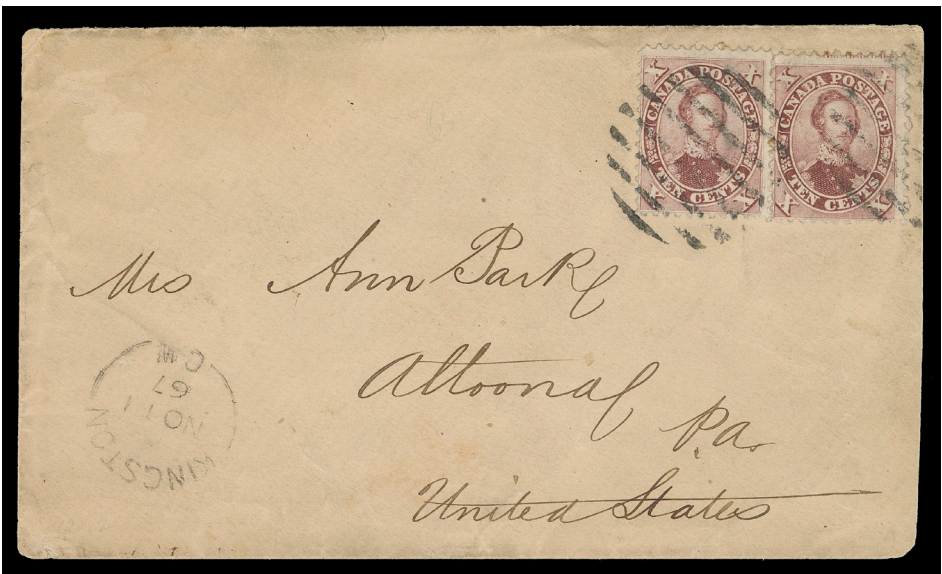 X CANADA POSTAGE X
X TEN CENTS X
X CANADA POSTAGE X
X TEN CENTS X
Mrs Ann Park
Altoona
Pa.
United States
KINGSTON
NO 11
67
C.W